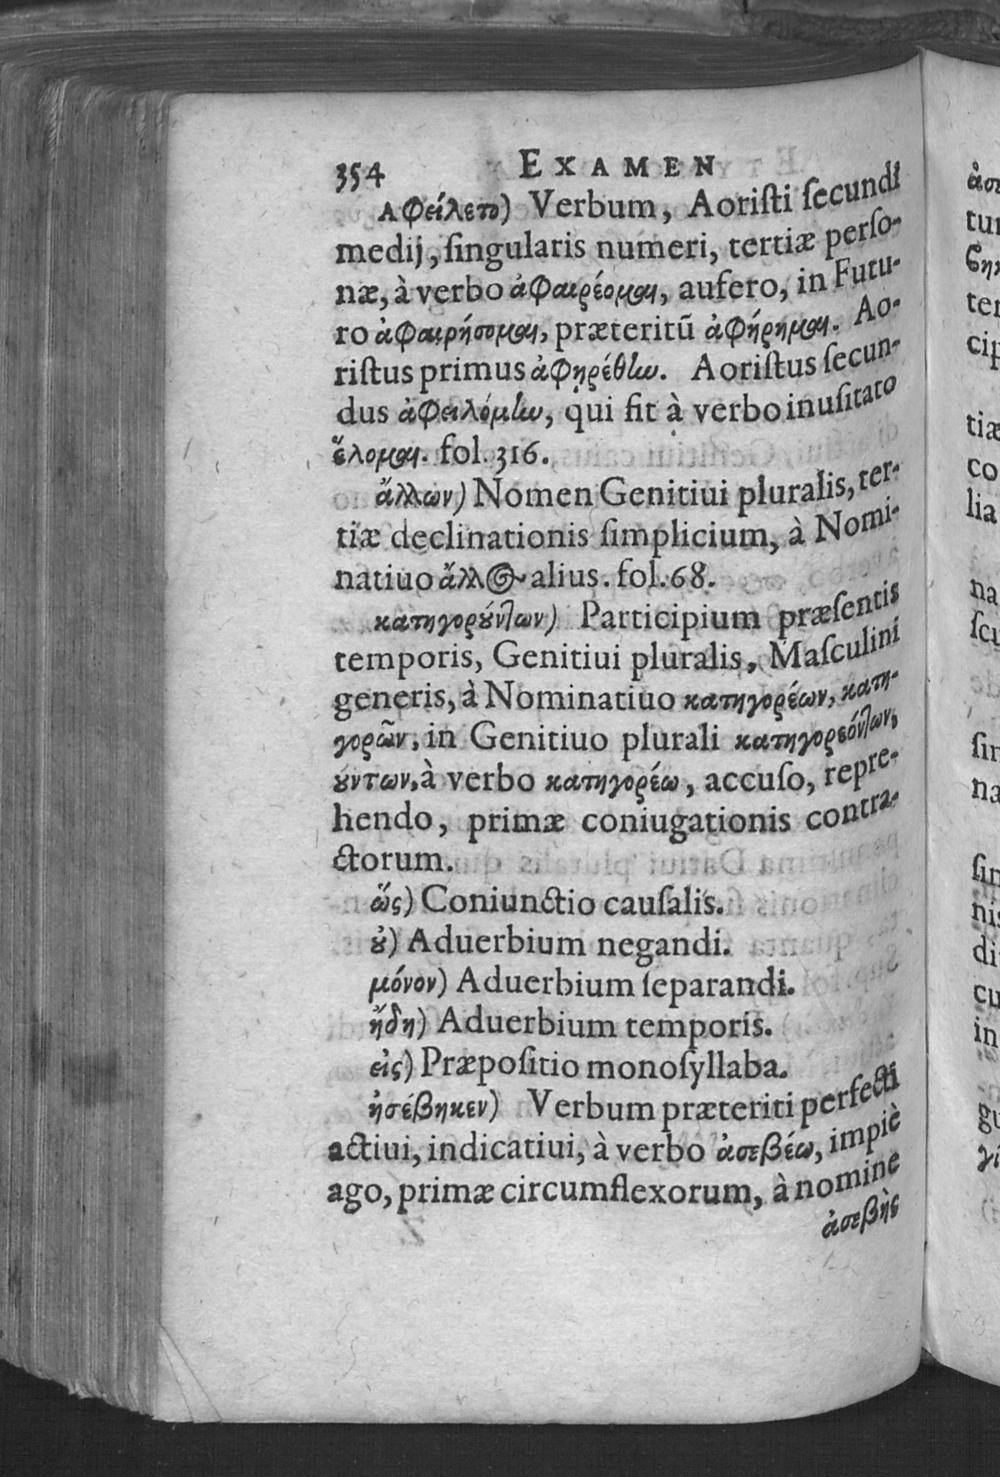 354 EXAMEN
Αφείλετο) Verbum, Aoristi secundi
medij, singularis numeri, tertiæ perso-
næ, à verbo ἀφαιρέομαι, aufero, in Futu-
ro ἀφαιρήσομαι, præteritũ ἀφήρημαι. Ao-
ristus primus ἀφηρέθην. Aoristus secun-
dus ἀφειλόμην, qui fit à verbo inusitato
ἕλομαι. fol. 316.
ἄλλων) Nomen Genitiui pluralis, ter-
tiæ declinationis simplicium, à Nomi-
natiuo ἄλλος alius. fol. 68.
κατηγορούντων) Participium præsentis
temporis, Genitiui pluralis, Masculini
generis, à Nominatiuo κατηγορέων, κατη-
γορῶν, in Genitiuo plurali κατηγορεόντων,
ούντων, à verbo κατηγορέω, accuso, repre-
hendo, primæ coniugationis contra-
ctorum.
ὥς) Coniunctio causalis.
οὐ) Aduerbium negandi.
μόνον) Aduerbium separandi.
ἤδη) Aduerbium temporis.
εἰς) Præpositio monosyllaba.
ἠσέβηκεν) Verbum præteriti perfecti
actiui, indicatiui, à verbo ἀσεβέω, impiè
ago, primæ circumflexorum, à nomine
ἀσεβὴς